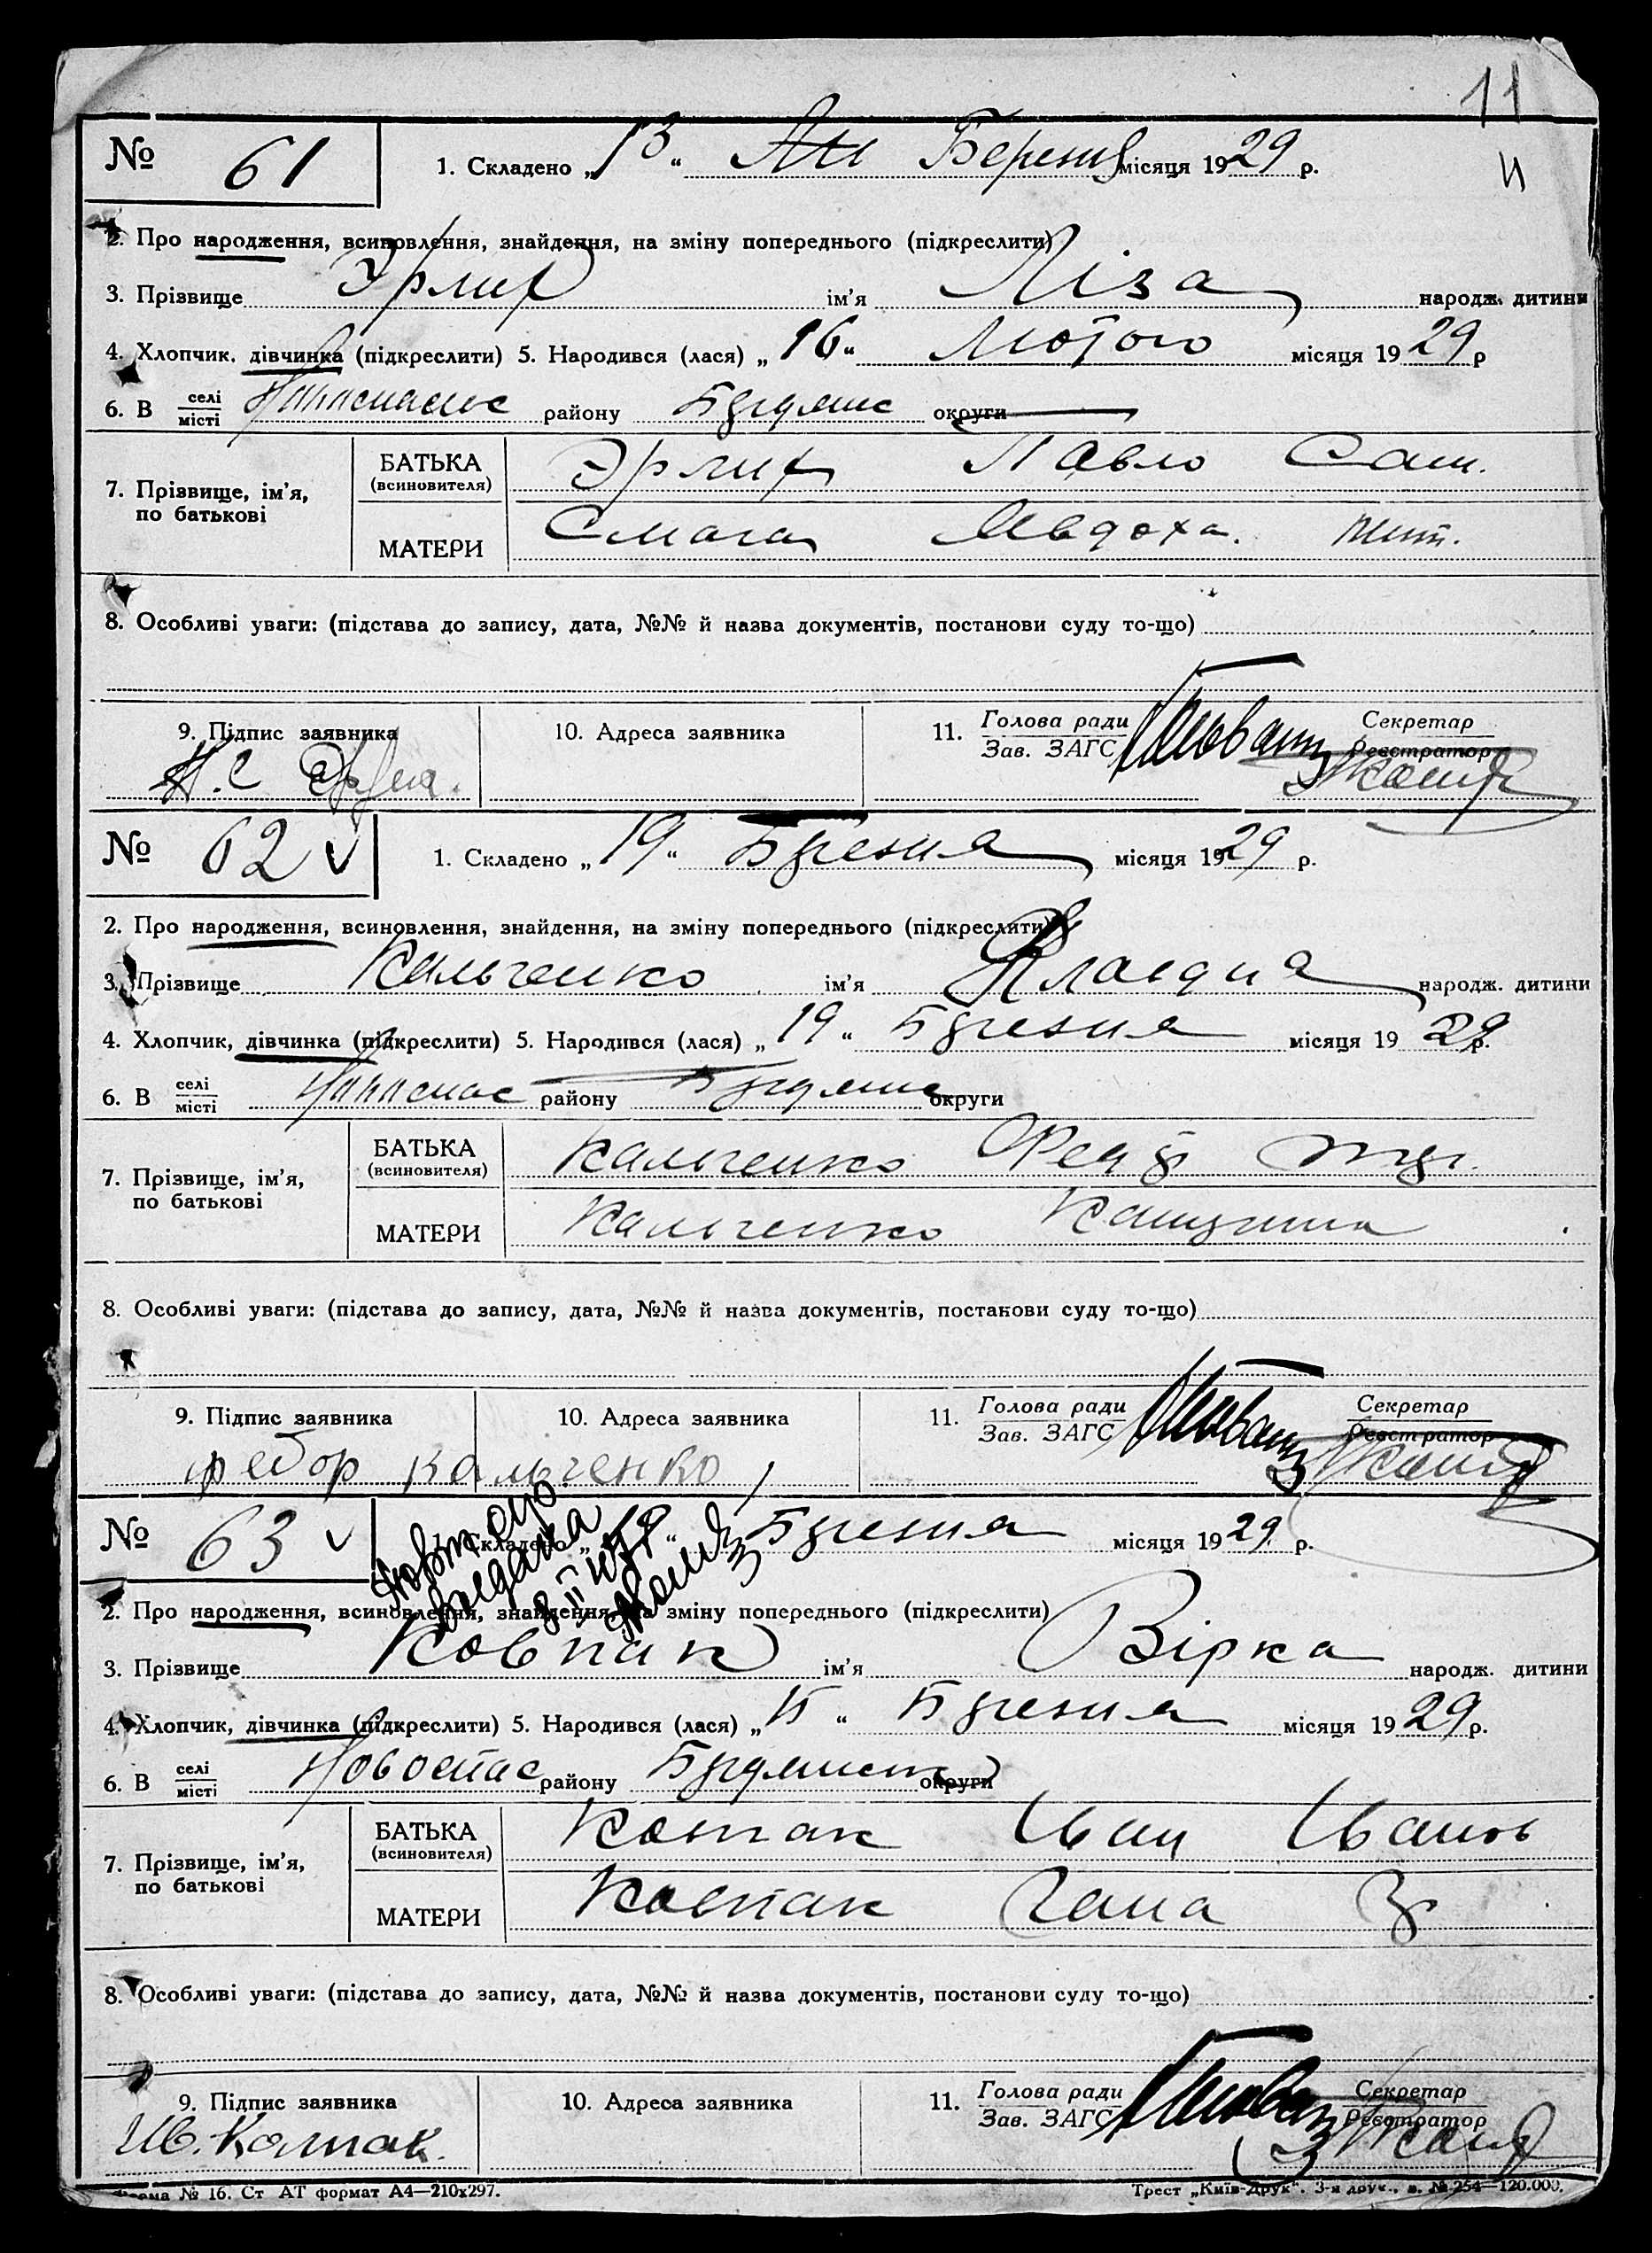 11
№ 61
1. Складено „13“ Березня місяця 1929 р.
2. Про народження, всиновлення, знайдення, на зміну попереднього (підкреслити)
3. Прізвище Эрлих ім'я Ліза народж. дитини
4. Хлопчик, дівчинка (підкреслити) 5. Народився (лася) „16“ Лютого місяця 1929 р
6. В селі місті району округи
7. Прізвище, ім'я, по батькові
БАТЬКА (всиновителя) Эрлих Павло Сам.
МАТЕРИ Явдоха.
8. Особливі уваги: (підстава до запису, дата, №№ й назва документів, постанови суду то-що)
9. Підпис заявника 10. Адреса заявника 11. Голова ради Зав. ЗАГС Секретар Реєстратор
№ 62
1. Складено „19“ Березня місяця 1929 р.
2. Про народження, всиновлення, знайдення, на зміну попереднього (підкреслити)
3. Прізвище Кальченко ім'я Клавдия народж. дитини
4. Хлопчик, дівчинка (підкреслити) 5. Народився (лася) „19“ Березня місяця 1929 р.
6. В селі місті району округи
7. Прізвище, ім'я, по батькові
БАТЬКА (всиновителя) Кальченко
МАТЕРИ Кальченко
8. Особливі уваги: (підстава до запису, дата, №№ й назва документів, постанови суду то-що)
9. Підпис заявника 10. Адреса заявника 11. Голова ради Зав. ЗАГС Секретар Реєстратор
федор кальченко
№ 63
Складено „ “ Березня місяця 1929 р.
2. Про народження, всиновлення, знайдення, на зміну попереднього (підкреслити)
3. Прізвище Ковпак ім'я Вірка народж. дитини
4. Хлопчик, дівчинка (підкреслити) 5. Народився (лася) „ “ Березня місяця 1929 р.
6. В селі місті Новоспас району округи
7. Прізвище, ім'я, по батькові
БАТЬКА (всиновителя) Ковпак Іван Іванов
МАТЕРИ Ковпак Гана
8. Особливі уваги: (підстава до запису, дата, №№ й назва документів, постанови суду то-що)
9. Підпис заявника 10. Адреса заявника 11. Голова ради Зав. ЗАГС Секретар Реєстратор
Ив. Колпак.
Форма № 16. Ст АТ формат А4—210х297.
Трест „Київ-Друк“. 3-я друк., з. № 254—120.000.